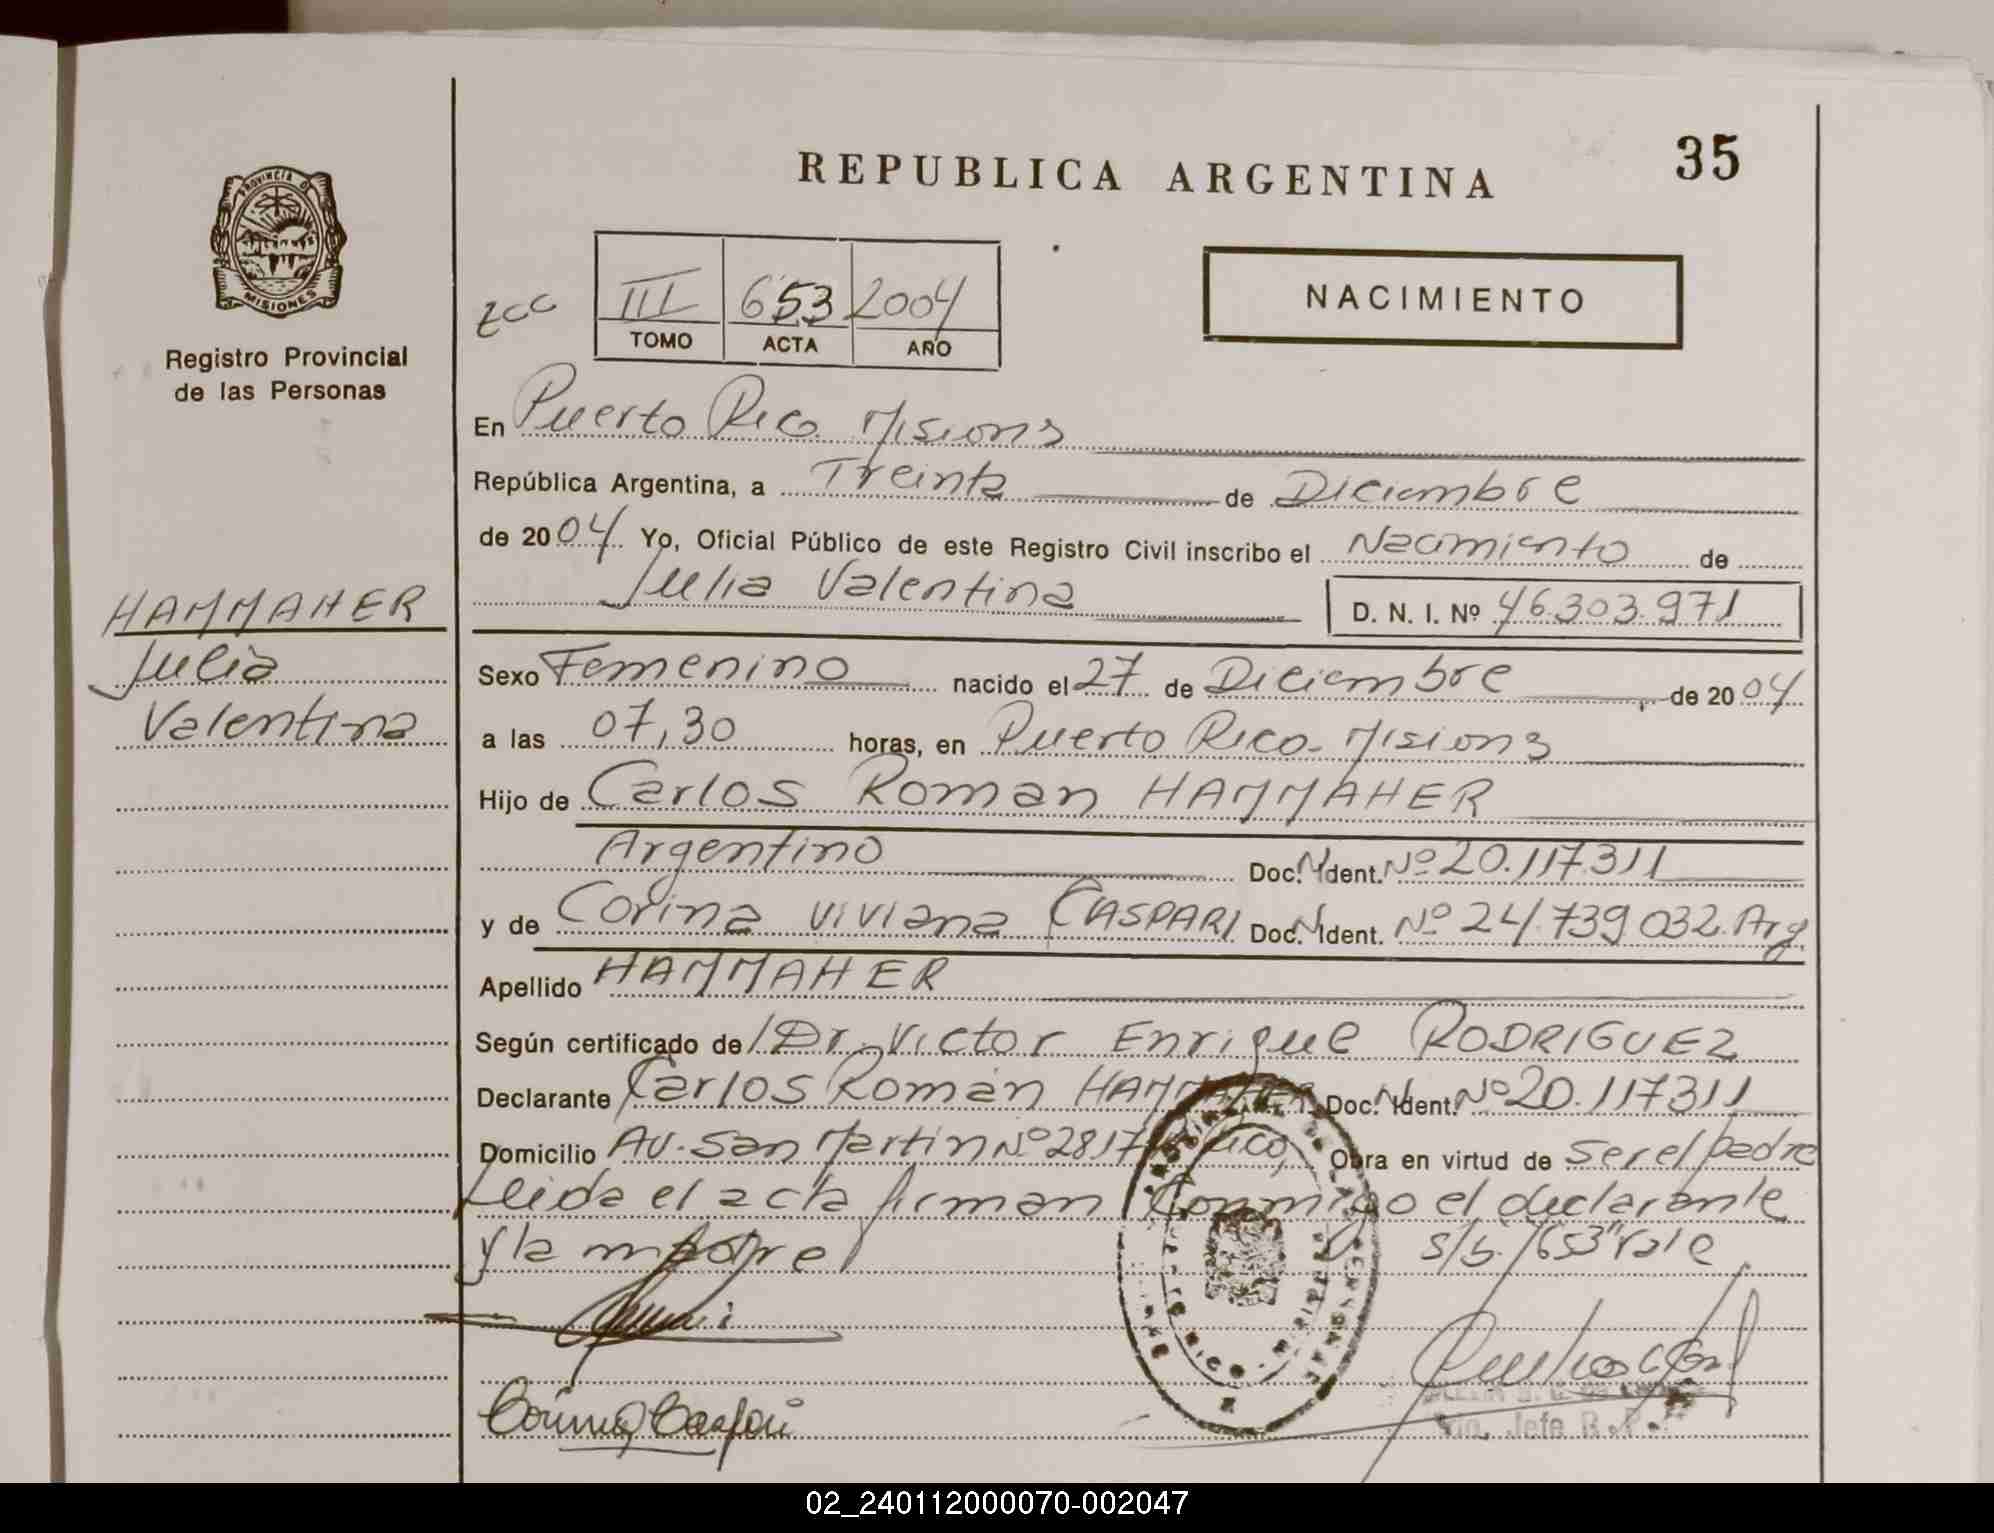 REPUBLICA ARGENTINA
35
PROVINCIA D
MISIONES
Registro Provincial
de las Personas
NACIMIENTO
III 653 2004
TOMO ACTA AÑO
En Puerto Rico Misions
República Argentina, a Treinta de Diciembre
de 2004 Yo, Oficial Público de este Registro Civil inscribo el Nacimiento de
Julia Valentina D. N. I. Nº 46.303.971
HAMMAHER
Julia
Valentina
Sexo Femenino nacido el 27 de Diciembre de 2004
a las 07,30 horas, en Puerto Rico-Misions
Hijo de Carlos Roman HAMMAHER
Argentino Doc. N Ident. Nº 20.117.311
y de Corina Viviana CASPARI Doc. N Ident. Nº 24.739.032. Arg
Apellido HAMMAHER
Según certificado de Dr. Victor Enrique RODRIGUEZ
Declarante Carlos Román HAMMAHER Doc. N Ident. Nº 20.117311
Domicilio AV. San Martin Nº 2817 Rico, Obra en virtud de ser el padre
Leida el acta firman Conmigo el declarante
y la madre s/b. "653" vale
Corina Caspari
Jefe R.P.
02_240112000070-002047